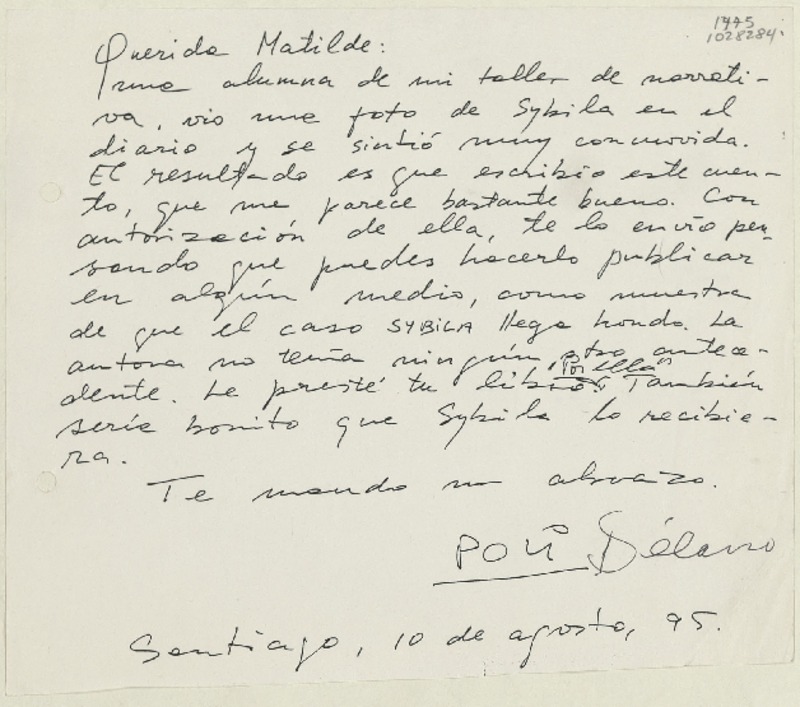 1445
1028284.
Querida Matilde:
una alumna de mi taller de narrati-
va, vio una foto de Sybila en el
diario y se sintió muy conmovida.
El resultado es que escribió este cuen-
to, que me parece bastante bueno. Con
autorización de ella, te lo envío pen-
sando que puedes hacerlo publicar
en algún medio, como muestra
de que el caso SYBILA llega hondo. La
autora no tenía ningún otro antece-
dente. Le presté tu libro "Por ella". También
sería bonito que Sybila lo recibie-
ra.
Te mando un abrazo.
POLI Délano
Santiago, 10 de agosto, 95.